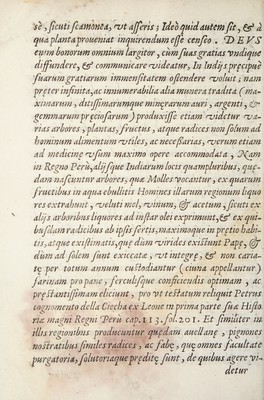 sē, sicuti scamonea, vt asseris; Ideò quid autem sit, & à
qua planta proueniat inquirendum esse censeo. DEVS
enim bonorum omnium largitor, cùm suas gratias vndique
diffundere, & communicare videatur, In Indijs præcipuè
suarum gratiarum immensitatem ostendere voluit; nam
præter infinita, ac innumerabilia alia munera tradita (ma
ximarum, ditissimarumque minerarum auri, argenti, &
gemmarum preciosarum) produxisse etiam videtur va-
rias arbores, plantas, fructus, atque radices non solum ad
hominum alimentum vtiles, ac necessarias, verum etiam
ad medicinę vsum maximo opere accommodata, Nam
in Regno Perù, alijsque Indiarum locis quampluribus, quę-
dam nascuntur arbores, que Molles vocantur, ex quarum
fructibus in aqua ebullitis Homines illarum regionum liquo
res extrahunt, veluti mel, vinum, & acetum, sicuti ex
alijs arboribus liquores ad instar olei exprimunt, & ex qui-
busdam radicibus ab ipsis sertis, maximoque in pretio habi-
tis, atque existimatis, que dùm virides existunt Papę, &
dùm ad solem sunt exiccatę, vt integrę, & non caria-
tę per totum annum custodiantur (ciuna appellantur)
farinam pro pane, ferculisque conficiendis optimam, ac
prestantissimam eliciunt, pro vt testatum reliquit Petrus
cognomento della Ciecha ex Leone in prima parte sua Histo
riæ magni Regni Perù cap. 113. fol. 201. Et similiter in
illis regionibus producuntur quędam auellanę, pignones
nostratibus similes radices, ac fabę, quę omnes facultate
purgatoria, solutoriaque preditę sunt, de quibus agere vi-
detur